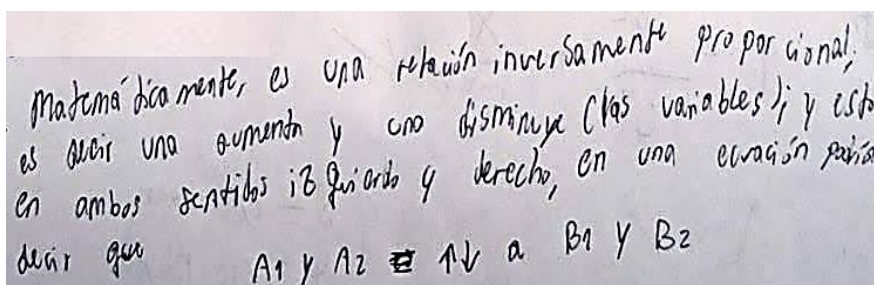 Matemáticamente, es una relación inversamente proporcional,
es decir una aumenta y uno disminuye (las variables); y esto
en ambos sentidos izquierdo y derecho, en una ecuación
decir que A1 y A2 = ↑↓ a B1 y B2